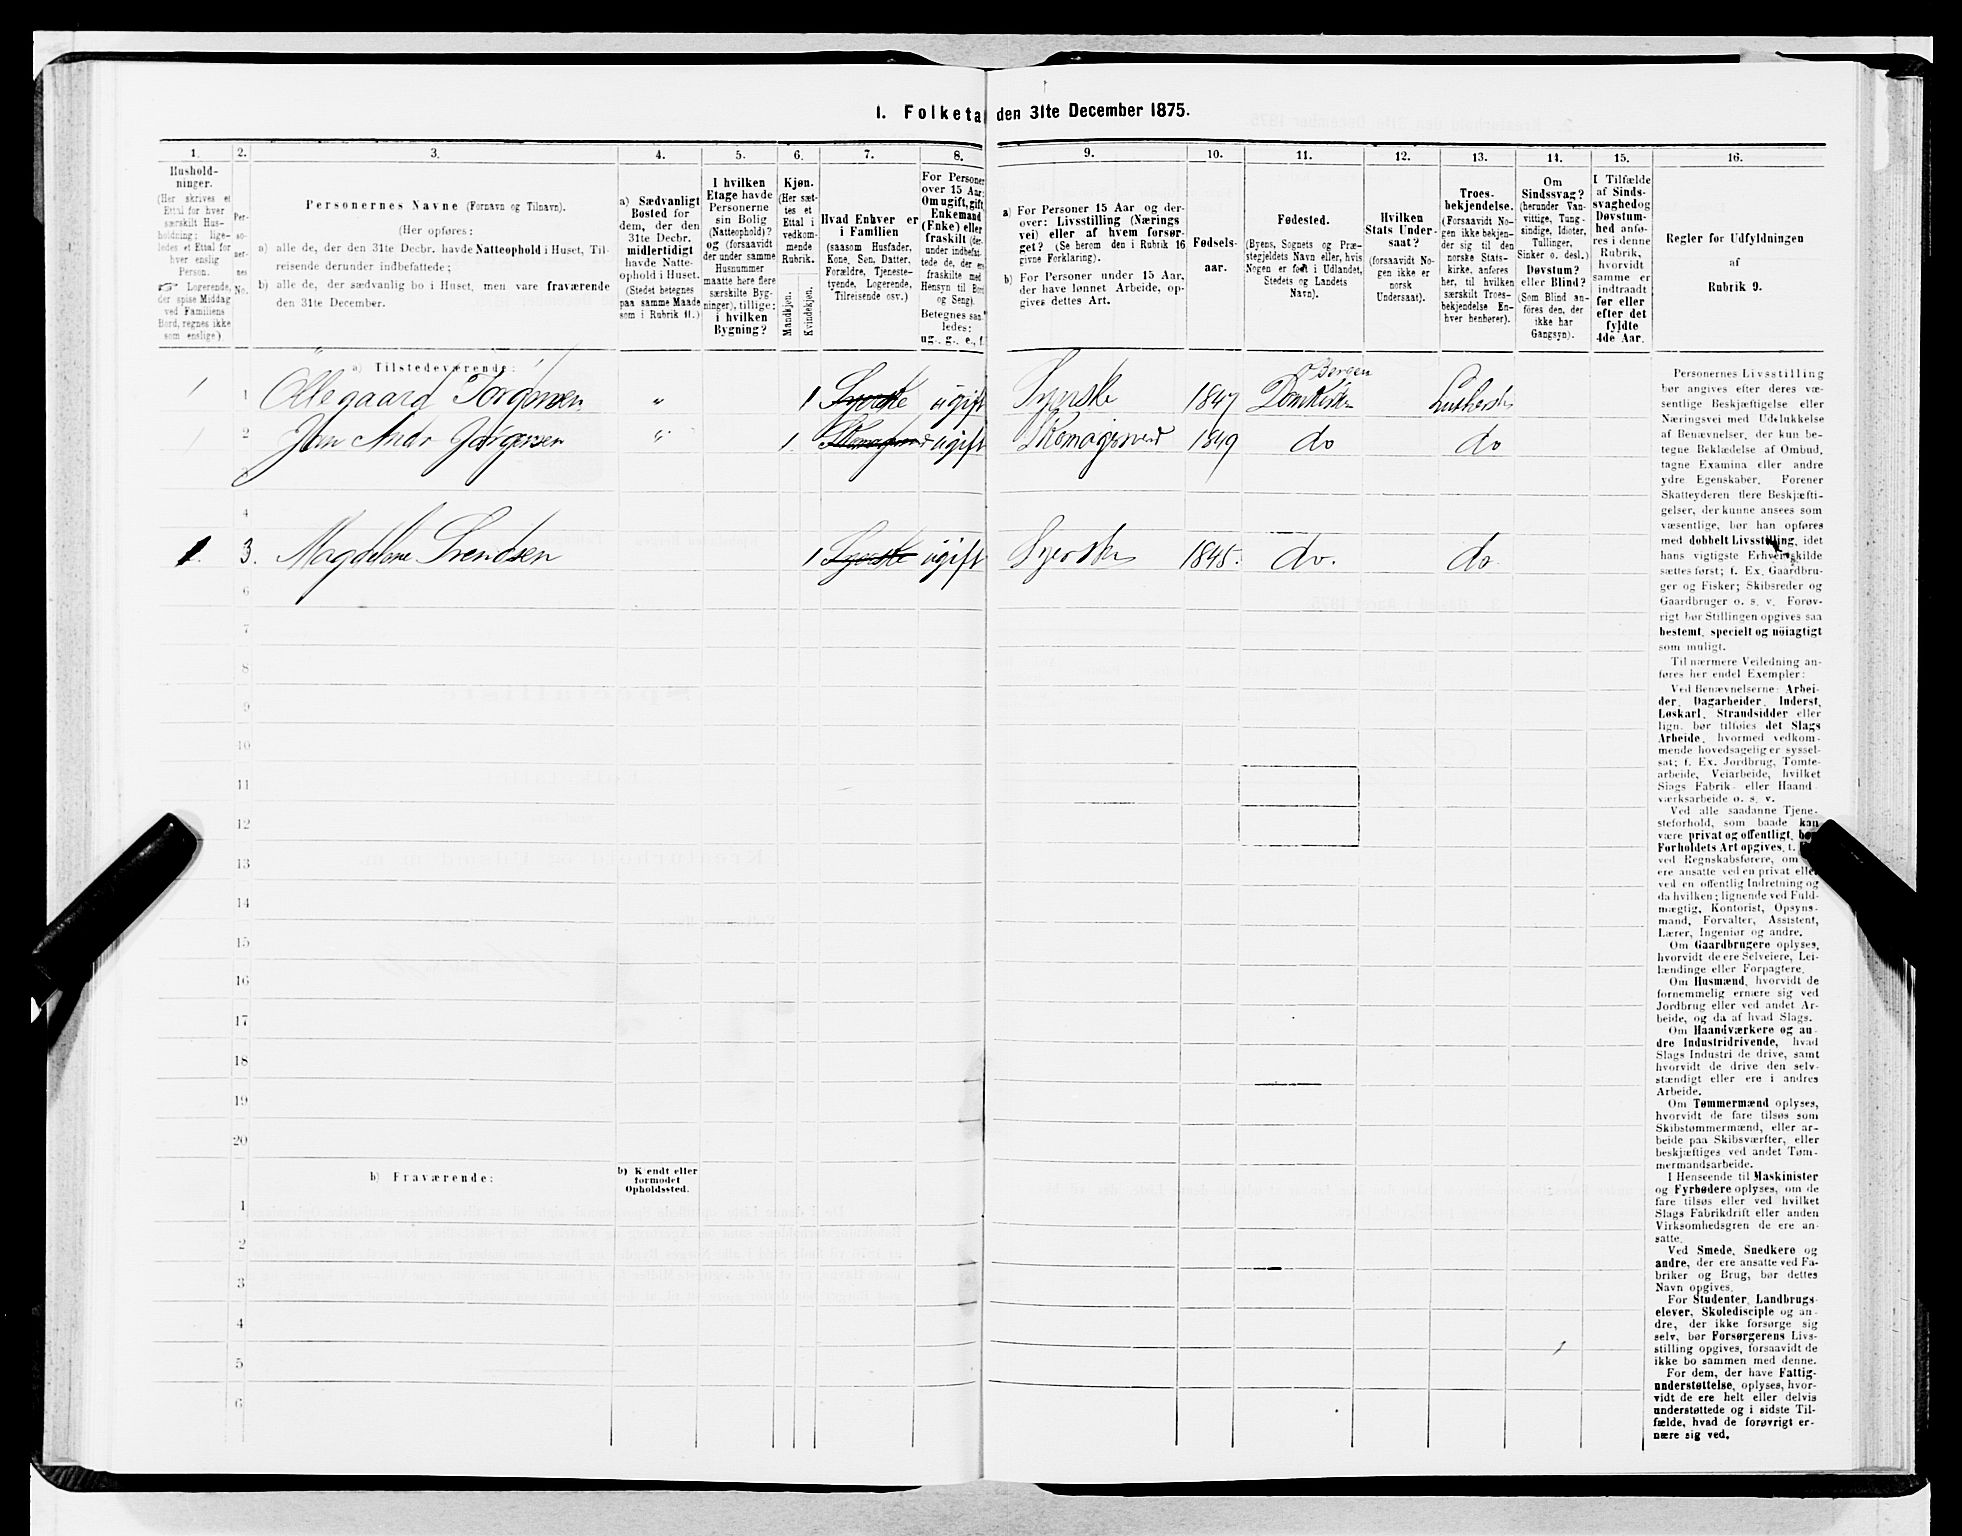 1. Folketal den 31te December 1875.
1.
2.
3.
4.
5.
6.
7.
8.
9.
10.
11.
12.
13.
14.
15.
16.
Hushold-
ninger.
(Her skrives et
Ettal for hver
særskilt Hus-
holdning; lige-
ledes et Ettal for
hver enslig
Person.
☞ Logerende,
der spise Middag
ved Familiens
Bord, regnes ikke
som enslige)
Per-
so-
ner-
nes
No.
Personernes Navne (Fornavn og Tilnavn).
(Her opføres:
a) alle de, der den 31te Decbr. havde Natteophold i Huset, Til-
reisende derunder indbefattede;
b) alle de, der sædvanlig bo i Huset, men vare fraværende
den 31te December.
a) Sædvanligt
Bosted for
dem, der den
31te Decbr.
midlertidigt
havde Natte-
ophold i Huset.
(Stedet betegnes
paa samme Maade
som i Rubrik 11.)
I hvilken
Etage havde
Personerne
sin Bolig
(Natteophold)?
og (forsaavidt
der under samme
Husnummer
maatte høre flere
særskilte Byg-
ninger), tillige:
i hvilken
Bygning?
Kjøn.
(Her sæt-
tes et
Ettal i
vedkom-
mende
Rubrik.
Mandkjøn.
Kvindekjøn.
Hvad Enhver er
i Familien
(saasom Husfader,
Kone, Søn, Datter,
Forældre, Tjeneste-
tyende, Logerende,
Tilreisende osv.)
For Personer
over 15 Aar:
Om ugift, gift,
Enkemand
(Enke) eller
fraskilt (der-
under indbefat-
tede de, der ere
fraskilte med
Hensyn til Bord
og Seng).
Betegnes saa-
ledes:
ug., g., e., f.
a) For Personer 15 Aar og der-
over: Livsstilling (Nærings
vei) eller af hvem forsør-
get? (Se herom den i Rubrik 16
givne Forklaring).
b) For Personer under 15 Aar,
der have lønnet Arbeide, op-
gives dettes Art.
Fødsels-
aar.
Fødested.
(Byens, Sognets og Præ-
stegjeldets Navn eller, hvis
Nogen er født i Udlandet,
Stedets og Landets
Navn).
Hvilken
Stats Under-
saat?
(forsaavidt No-
gen ikke er
norsk
Undersaat).
Troes-
bekjendelse.
(Forsaavidt No-
gen ikke bekjen-
der sig til den
norske Stats-
kirke, anføres
her, til hvilken
særskilt Troes-
bekjendelse En-
hver henhører).
Om
Sindssvag?
(herunder Van-
vittige, Tung-
sindige, Idioter,
Tullinger,
Sinker o. desl.)
Døvstum?
eller Blind?
(Som Blind an-
føres den, der
ikke har
Gangsyn).
I Tilfælde
af Sinds-
svaghed og
Døvstum-
hed anfø-
res i denne
Rubrik,
hvorvidt
samme er
indtraadt
før eller
efter det
fyldte
4de Aar.
Regler for Udfyldningen
af
Rubrik 9.
a) Tilstedeværende:
1 1 Ollegaard Jørgensen " 1 Syerske ugift Syerske 1847 Bergen Domkirken Luthersk
1 2 Jhan Andr Jørgensen " 1 Skomagersvend ugift Skomagersvend 1849 do do
3
4
1. 3. Magdelene Svendsen 1 Syerske ugift Syerske 1845. do. do
6
7
8
9
10
11
12
13
14
15
16
17
18
19
20
b) Fraværende:
b) Kjendt eller
formodet
Opholdssted.
1
2
3
4
5
6
Personernes Livsstilling
bør angives efter deres væ-
sentlige Beskjæftigelse eller
Næringsvei med Udelukkelse
af Benævnelser, der kun be-
tegne Beklædelse af Ombud,
tagne Examina eller andre
ydre Egenskaber. Forener
Skatteyderen flere Beskjæfti-
gelser, der kunne ansees som
væsentlige, bør han opføres
med dobbelt Livsstilling, idet
hans vigtigste Erhvervskilde
sættes først; f. Ex. Gaardbru-
ger og Fisker; Skibsreder og
Gaardbruger o. s. v. Forøv-
rigt bør Stillingen opgives saa
bestemt, specielt og nöiagtigt
som muligt.
Til nærmere Veiledning an-
føres her endel Exempler:
Ved Benævnelserne: Arbei-
der, Dagarbeider, Inderst,
Løskarl, Strandsidder eller
lign. bør tilføies det Slags
Arbeide, hvormed vedkom-
mende hovedsagelig er syssel-
sat; f. Ex. Jordbrug, Tomte-
arbeide, Veiarbeide, hvilket
Slags Fabrik- eller Haand-
værksarbeide o. s. v.
Ved alle saadanne Tjene-
steforhold, som baade kan
være privat og offentligt, bør
Forholdets Art opgives, t.
ved Regnskabsførere, om
ere ansatte ved en privat eller
ved en offentlig Indretning og
da hvilken; lignende ved Fuld-
mægtig, Kontorist, Opsyns-
mand, Forvalter, Assistent,
Lærer, Ingeniør og andre.
Om Gaardbrugere oplyses,
hvorvidt de ere Selveiere, Lei-
lændinge eller Forpagtere.
Om Husmænd, hvorvidt de
fornemmelig ernære sig ved
Jordbrug eller ved andet Ar-
beide, og da af hvad Slags.
Om Haandværkere og an-
dre Industridrivende, hvad
Slags Industri de drive, samt
hvorvidt de drive den selv-
stændigt eller ere i andres
Arbeide.
Om Tømmermænd oplyses,
hvorvidt de fare tilsøs som
Skibstømmermænd, eller ar-
beide paa Skibsværfter, eller
beskjæftiges ved andet Tøm-
mermandsarbeide.
I Henseende til Maskinister
og Fyrbødere oplyses, om de
fare tilsøs eller ved hvilket
Slags Fabrikdrift eller anden
Virksomhedsgren de ere an-
satte.
Ved Smede, Snedkere og
andre, der ere ansatte ved Fa-
briker og Brug, bør dettes
Navn opgives.
For Studenter, Landbrugs-
elever, Skoledisciple og an-
dre, der ikke forsørge sig
selv, bør Forsørgerens Livs-
stilling opgives, forsaavidt de
ikke bo sammen med denne.
For dem, der have Fattig-
understøttelse, oplyses, hvor-
vidt de ere helt eller delvis
understøttede og i sidste Til-
fælde, hvad de forøvrigt er-
nære sig ved.